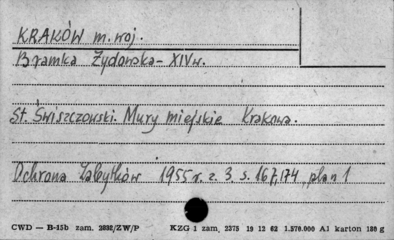 KRAKÓW m. woj.
Bramka Żydowska - XIV w.
St. Świszczowski. Mury miejskie Krakowa.
Ochrona Zabytków 1955 r. z. 3. s. 167, 174, plan 1
CWD — B-15b zam. 2092/ZW/P KZG 1 zam. 2375 19 12 62 1.570.000 A1 karton 180 g